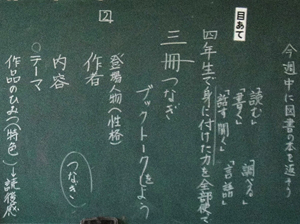 今週中に図書の本を返そう
目あて
「読む」
「書く」
「話す聞く」
「調べる」
「言語」
四年生で身に付けた力を全部使って
ブックトークをしよう
三冊つなぎ
2
登場人物(性格)
作者
内容
つなぎ
○テーマ
作品のひみつ(特色)→読後感